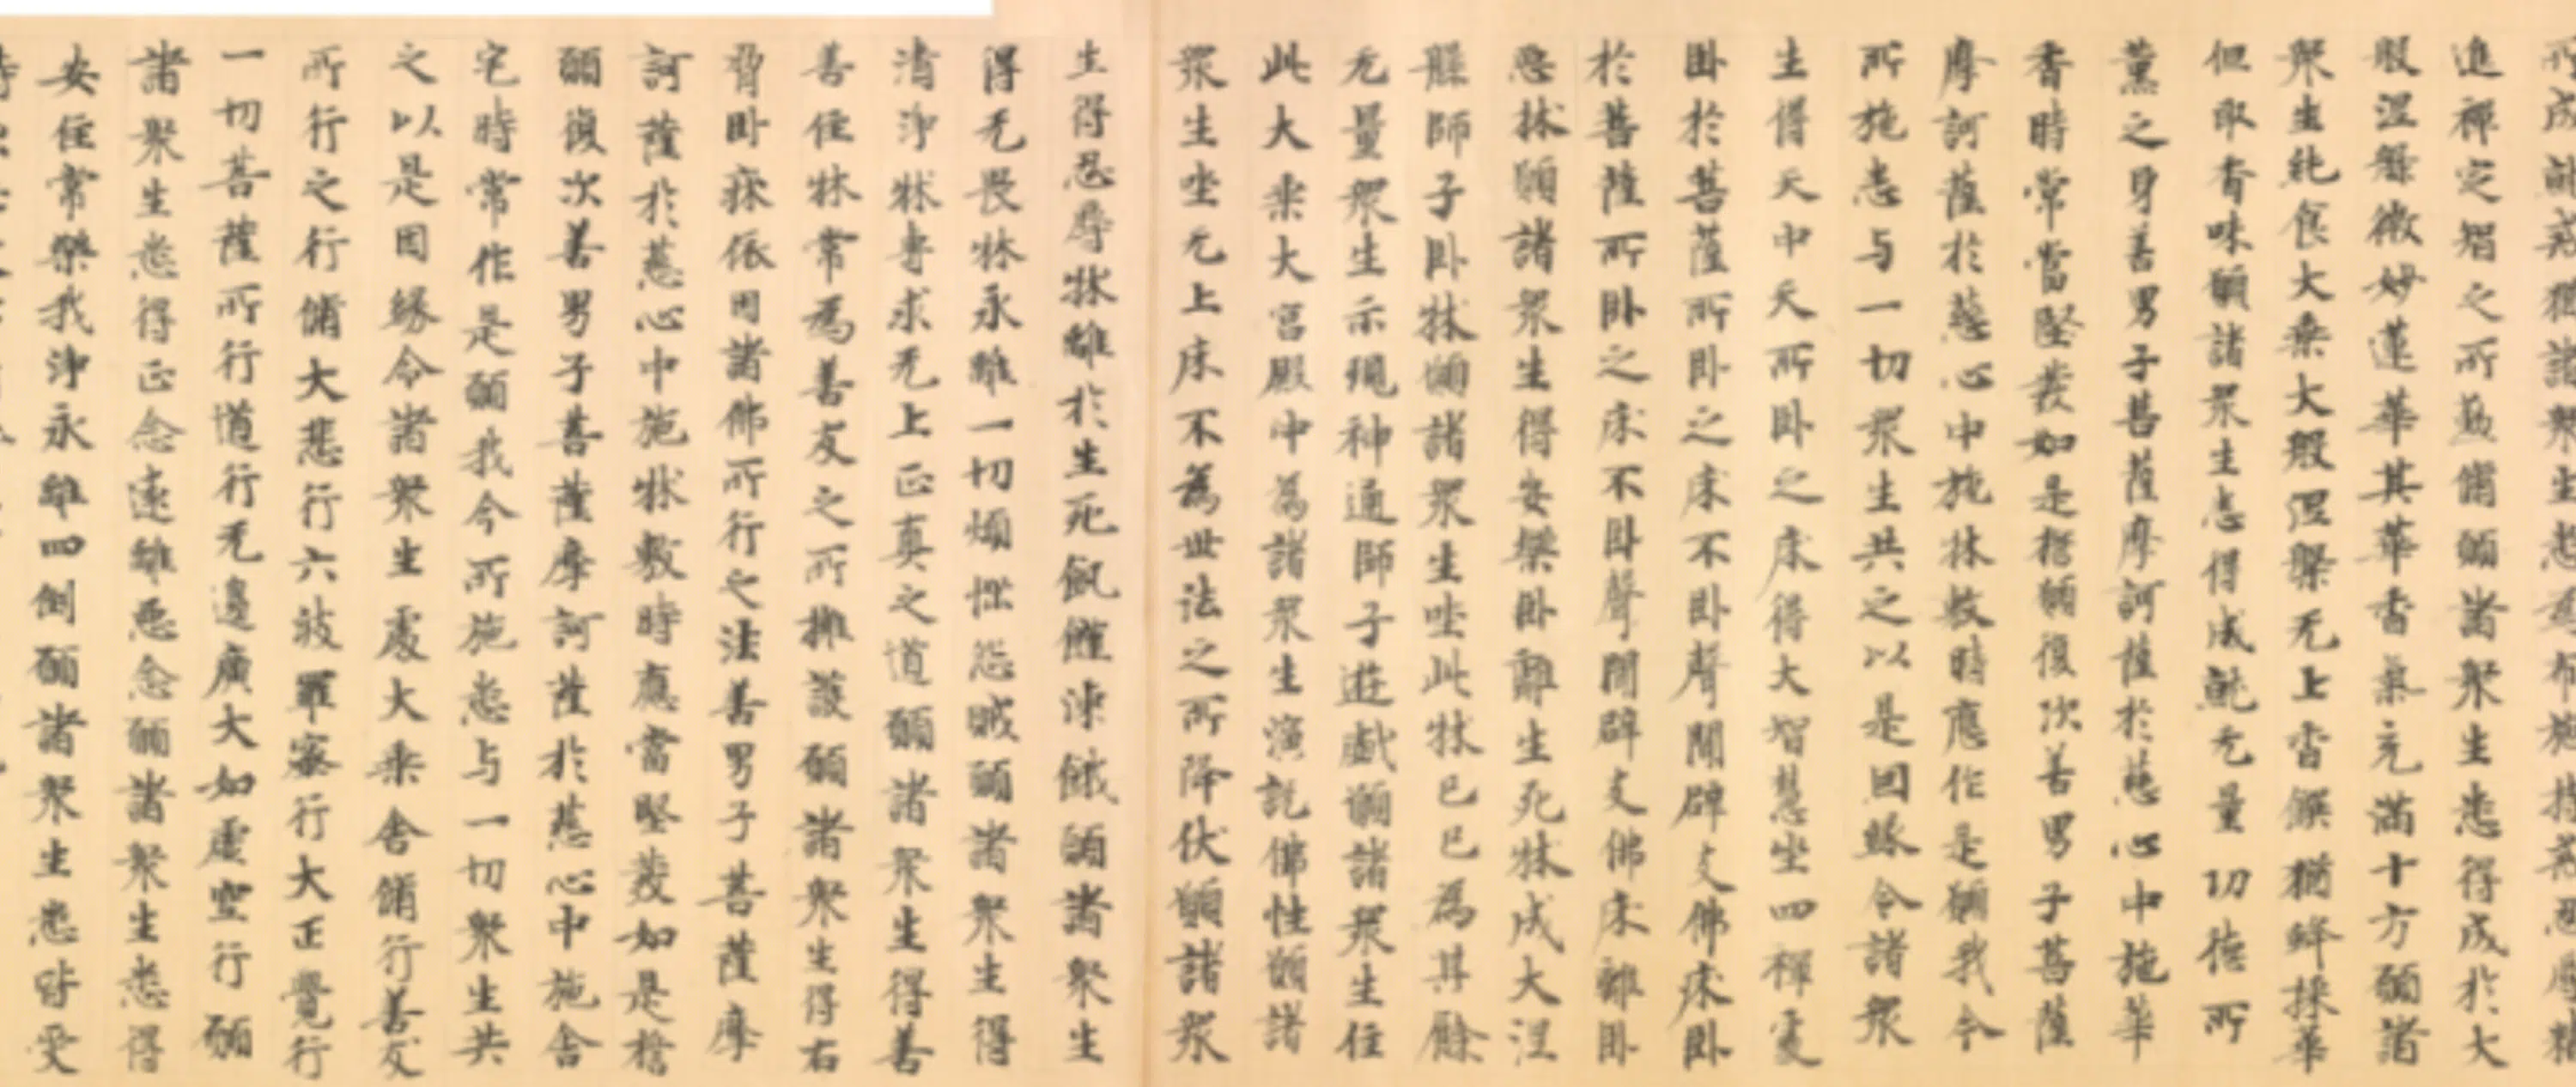 進禪定智之所熏脩願諸衆生悉得成於大
般涅槃微妙蓮華其華香氣充滿十方願諸
衆生純食大乘大般涅槃无上香饌猶蜂採華
但取香味願諸衆生悉得成就无量功德所
薰之身善男子菩薩摩訶薩於慈心中施華
香時常當堅發如是擔願復次善男子菩薩
摩訶薩於慈心中施牀敷時應作是願我今
所施悉与一切衆生共之以是因緣令諸衆
生得天中天所卧之床得大智慧坐四禪處
卧於菩薩所卧之床不卧聲聞辟支佛床卧
於菩薩所卧之床不卧聲聞辟支佛床離卧
惡牀願諸衆生得安樂卧離生死牀成大涅
縣師子卧牀願諸衆生坐此牀已已為其餘
无量衆生示現神通師子遊戲願諸衆生住
此大乘大宮殿中為諸衆生演說佛性願諸
衆生坐无上床不為世法之所降伏願諸衆
生得忍辱牀離於生死飢饉凍餓願諸衆生
得无畏牀永離一切煩惱怨賊願諸衆生得
清淨牀專求无上正真之道願諸衆生得善
善住牀常為善友之所擁護願諸衆生得右
脅卧牀依因諸佛所行之法善男子菩薩摩
訶薩於慈心中施牀敷時應當堅發如是擔
願復次善男子菩薩摩訶薩於慈心中施舍
宅時常作是願我今所施悉与一切衆生共
之以是因緣令諸衆生處大乘舍脩行善友
所行之行行脩大悲行六波羅蜜行大正覺行
一切菩薩所行道行无邊廣大如虛空行願
諸衆生悉得正念遠離惡念願諸衆生悉得
安住常樂我淨永離四倒願諸衆生悉皆受